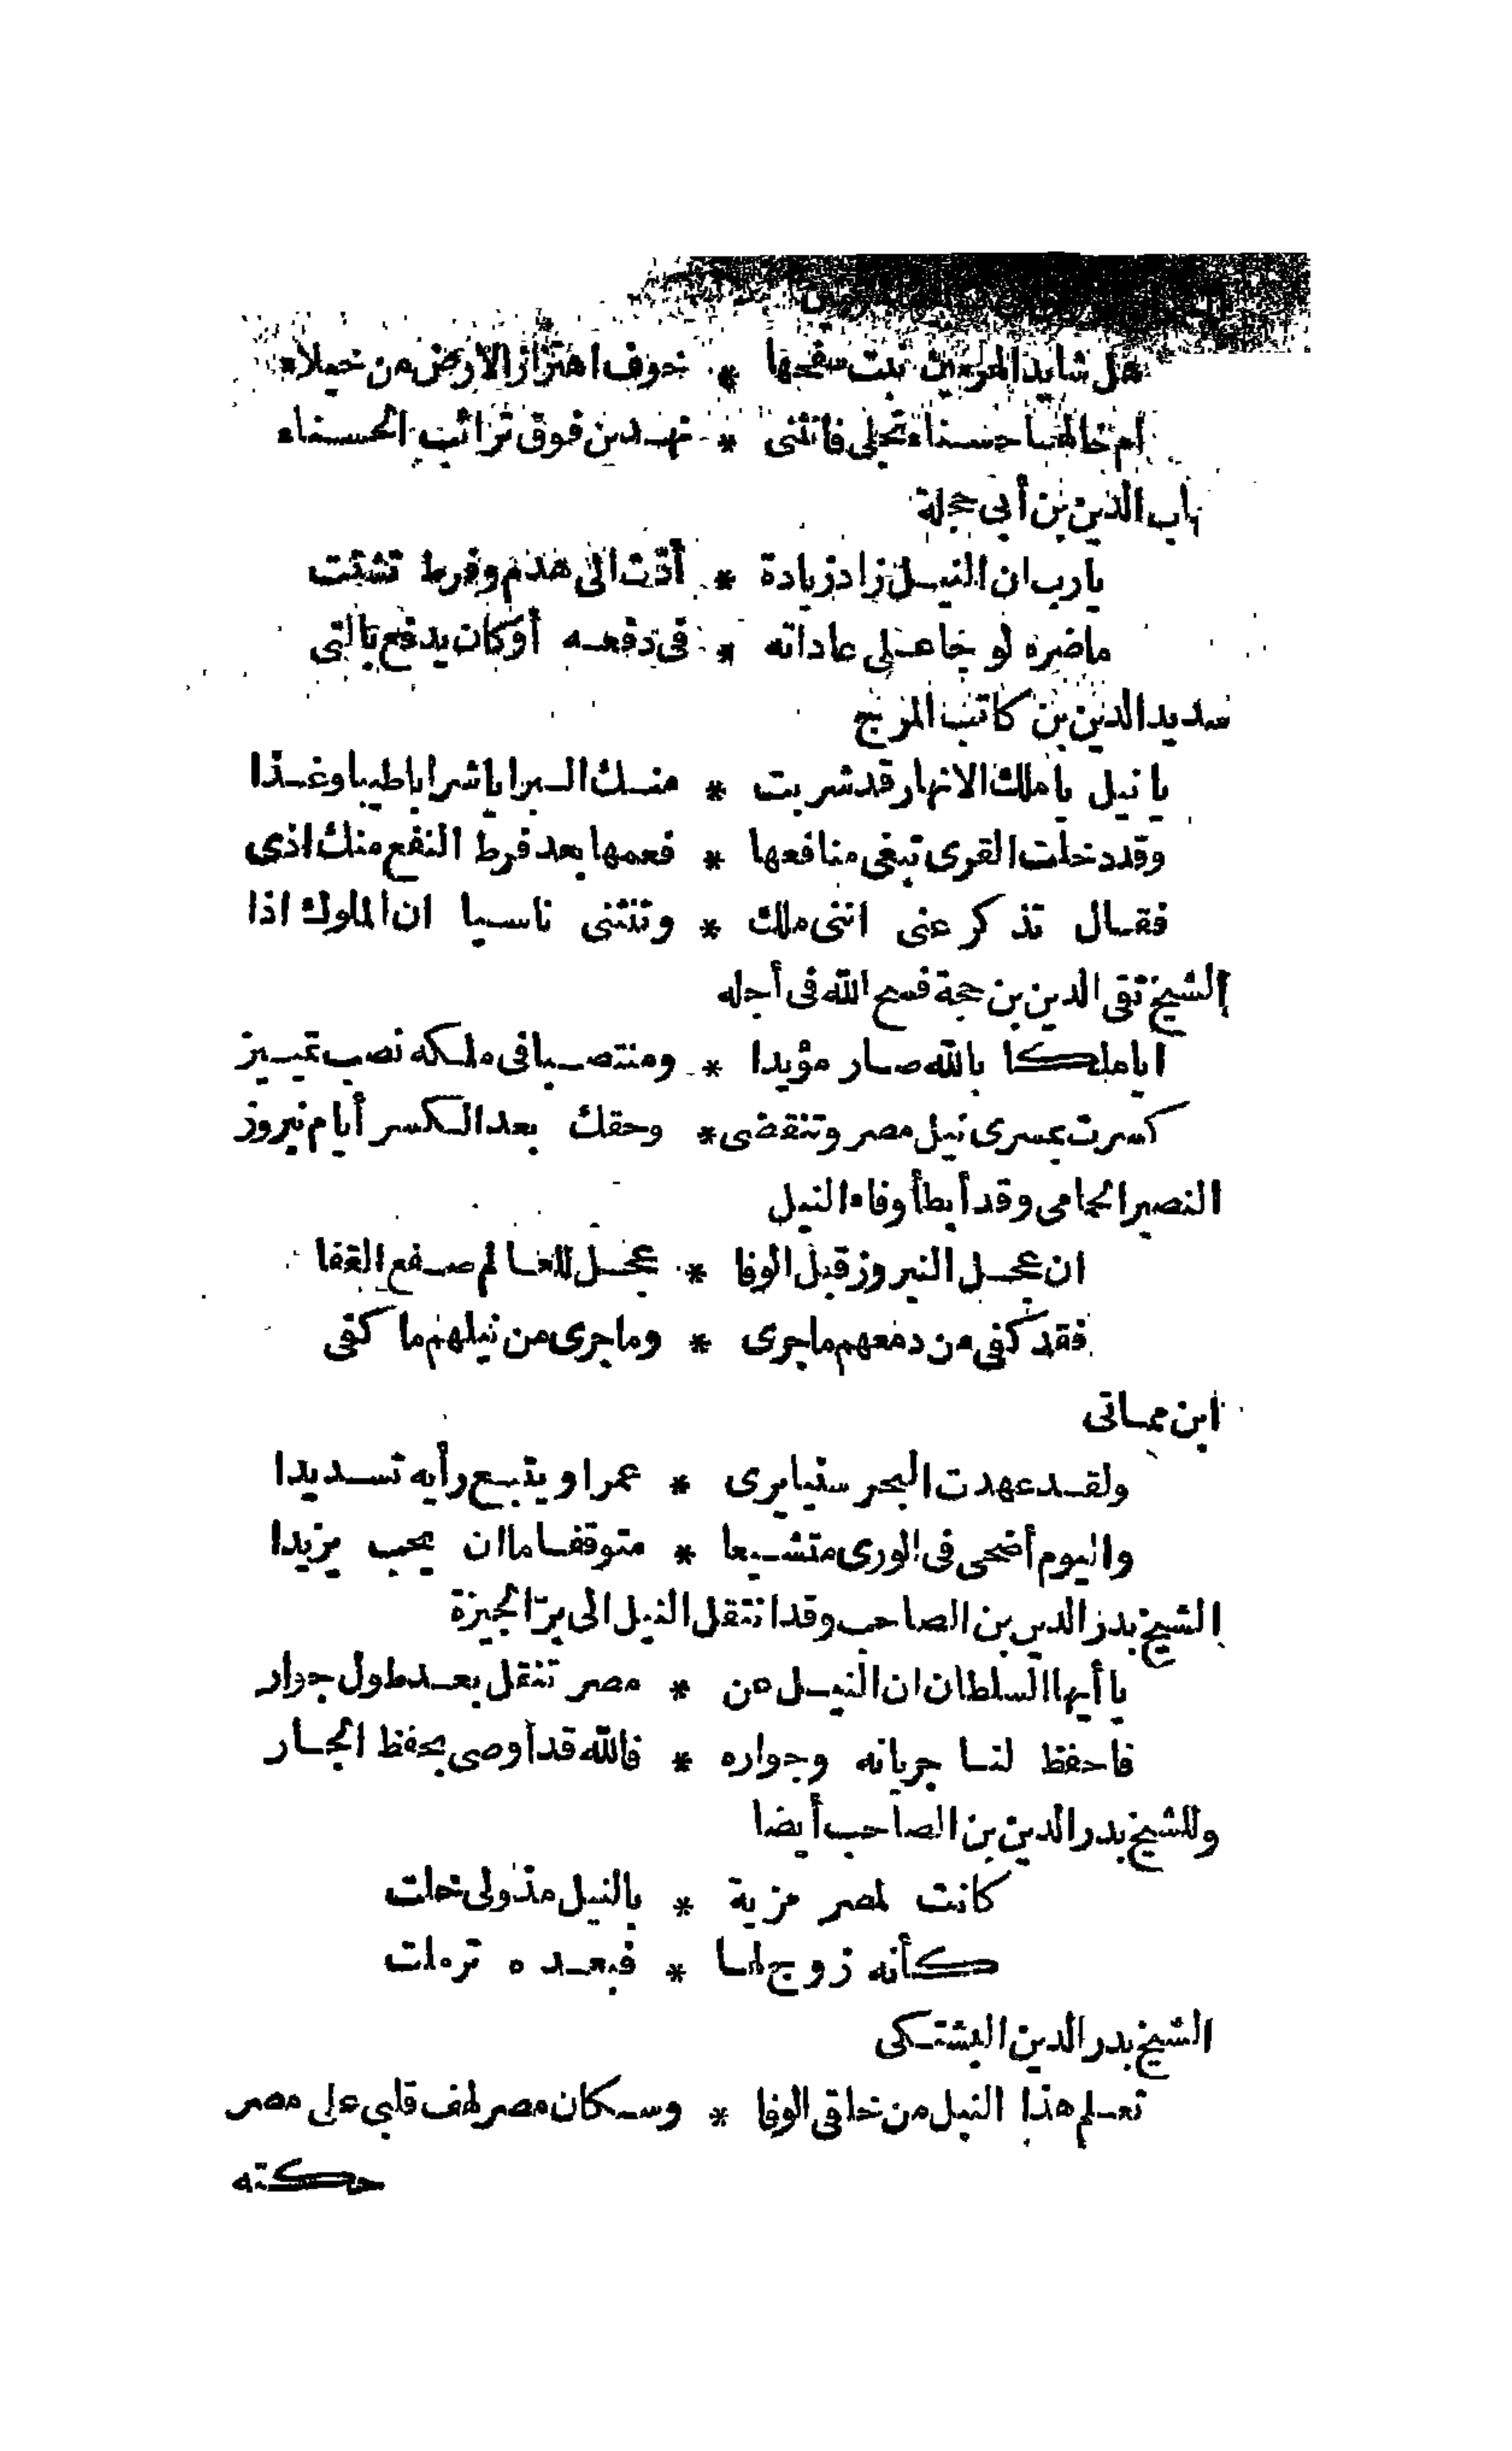 هل شايد الهرمين ثبت سفحها * خوف اهتزاز الارض من خيلاء
أم خالها حسناء تجلى فانثنى * نهدين فوق ترائب الحسناء
هاب الدين بن أبى حجلة
يارب ان النيل زاد زيادة * أدت الى هدم وفرط تشتت
ماضره لو جا على عاداته * فى دفعه أو كان يدفع بالتى
سديد الدين بن كاتب المرج
يا نيل يا ملك الانهار قد شربت * منك البرايا شرابا طيبا وغذا
وقد دخلت القرى تبغى منافعها * فعمها بعد فرط النفع منك اذى
فقال تذكر عنى اننى ملك * وتنثنى ناسيا ان الملوك اذا
الشيخ تقى الدين بن حجة فسح الله فى أجله
ايا ملكا بالله صار مؤيدا * ومنتصبا فى ملكه نصب تمييز
كسرت بمسرى نيل مصر وتنقضى * وحقك بعد الكسر أيام نيروز
النصير الحمامى وقد أبطأ وفاء النيل
ان عجل النيروز قبل الوفا * عجل للعالم صفع القفا
فقد كفى من دمعهم ماجرى * وماجرى من نيلهم ما كفى
ابن مماتى
ولقد عهدت البحر سنيا يرى * عمرا ويتبع رأيه تسديدا
واليوم أضحى فى الورى متشيعا * متوقفا ما ان يحب يزيدا
الشيخ بدر الدين بن الصاحب وقد انتقل النيل الى بر الجيزة
يا أيها السلطان ان النيل من * مصر تنقل بعد طول جوار
فاحفظ لنا جريانه وجواره * فالله قد أوصى بحفظ الجار
وللشيخ بدر الدين بن الصاحب أيضا
كانت لمصر مزية * بالنيل مذ ولى خلت
كأنه زوج لها * فبعده ترملت
الشيخ بدر الدين البشتكى
تعلم هذا النيل من خلقى الوفا * وسكان مصر لهف قلبى على مصر
حكته